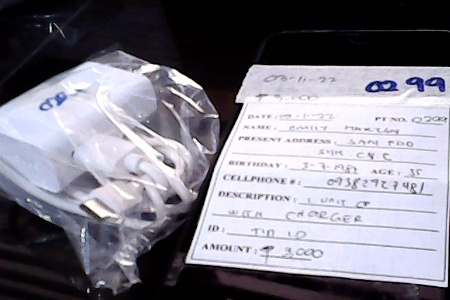 03-11-22 0299
₱ 3,000
DATE: 03-11-22 PT NO. 0299
NAME: EMILY
PRESENT ADDRESS: SAN PDO
BIRTHDAY: 5-7-1987 AGE: 35
CELLPHONE #: 09382927481
DESCRIPTION: 1 UNIT CP
WITH CHARGER
ID: TIN ID
AMOUNT: ₱ 3,000